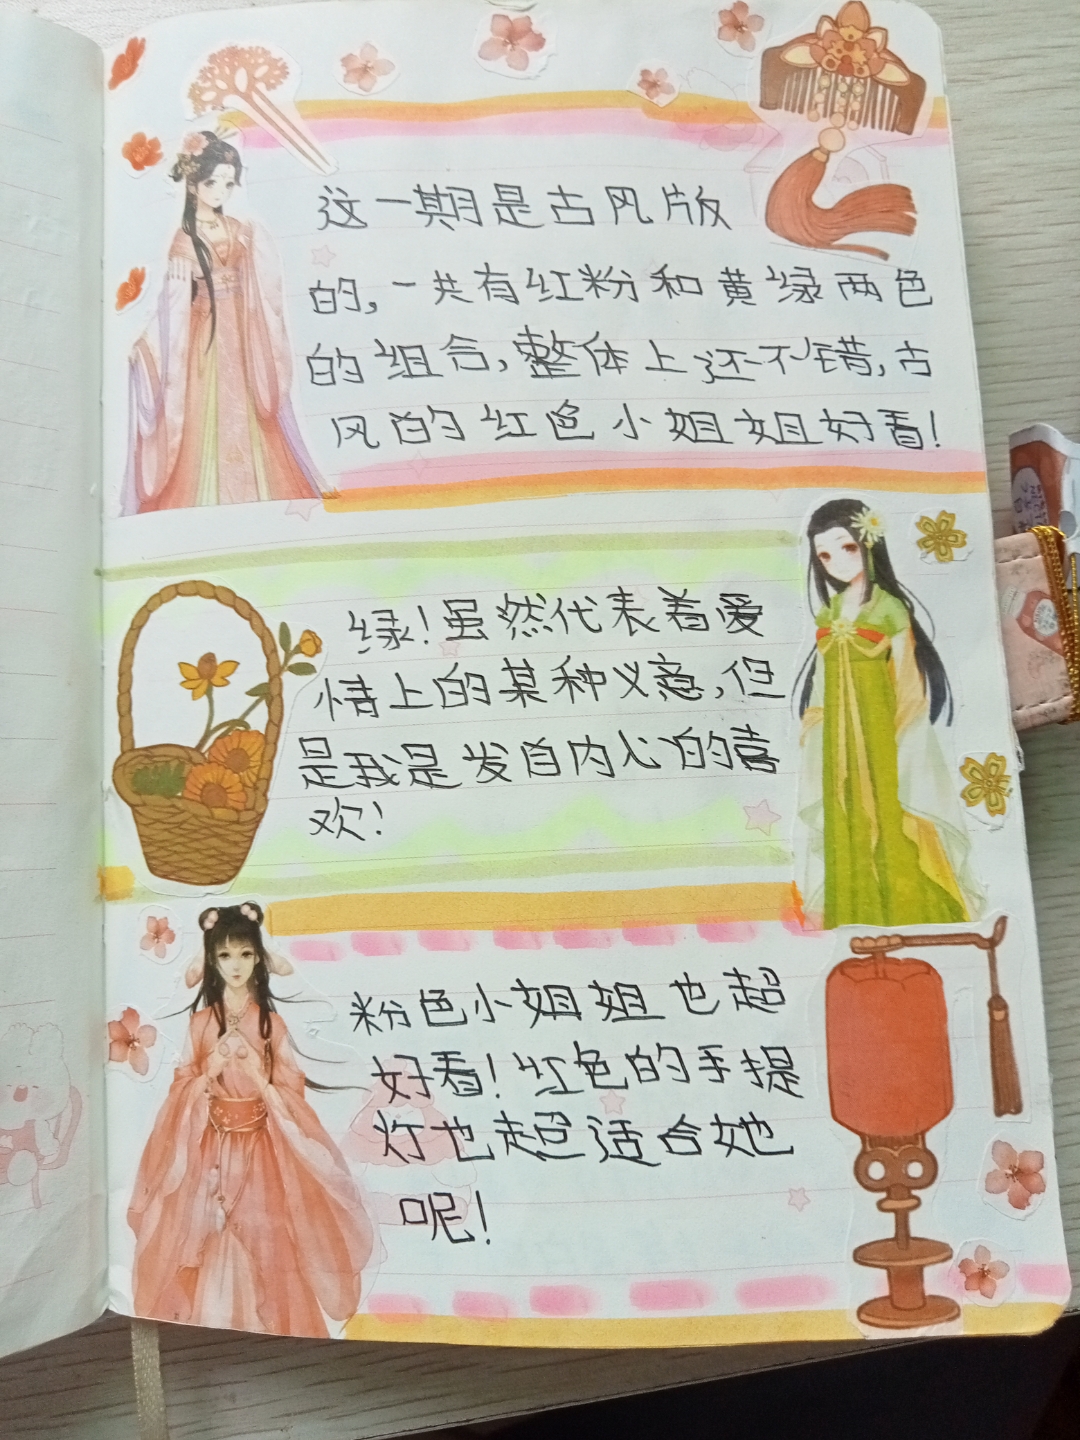 这一期是古风版
的,一共有红粉和黄绿两色
的组合,整体上还不错,古
风的红色小姐姐好看!
绿!虽然代表着爱
情上的某种义意,但
是我是发自内心的喜
欢!
粉色小姐姐也超
好看!红色的手提
灯也超适合她
呢!